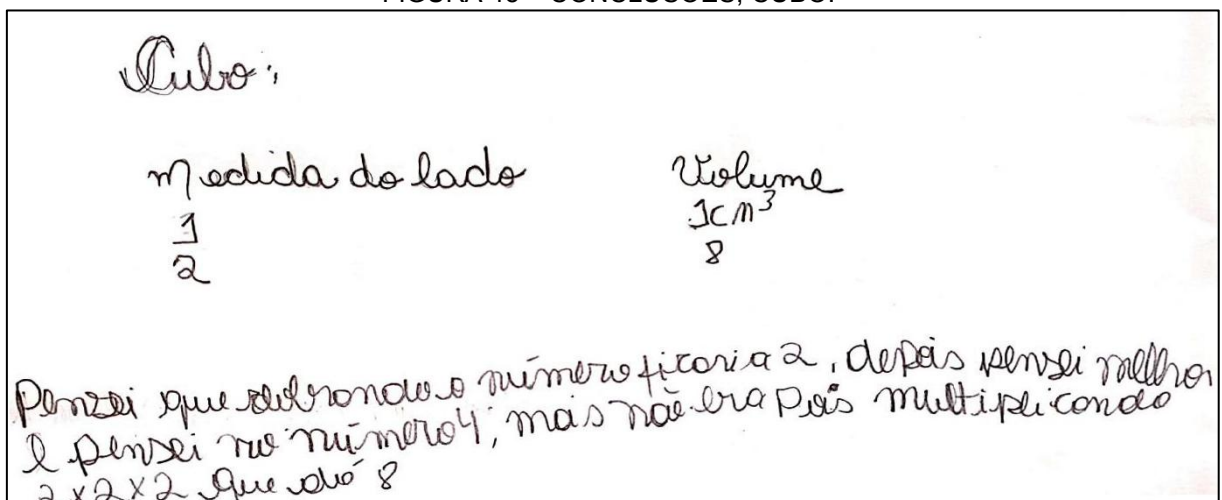 FIGURA 40 – CONCLUSÕES, CUBO.
Cubo:
Medida do lado Volume
1 1cm³
2 8
Penzei que dobrando o número ficaria 2, depois pensei melhor
e pensei no número 4, mais não era pois multiplicando
2x2x2 que dá 8